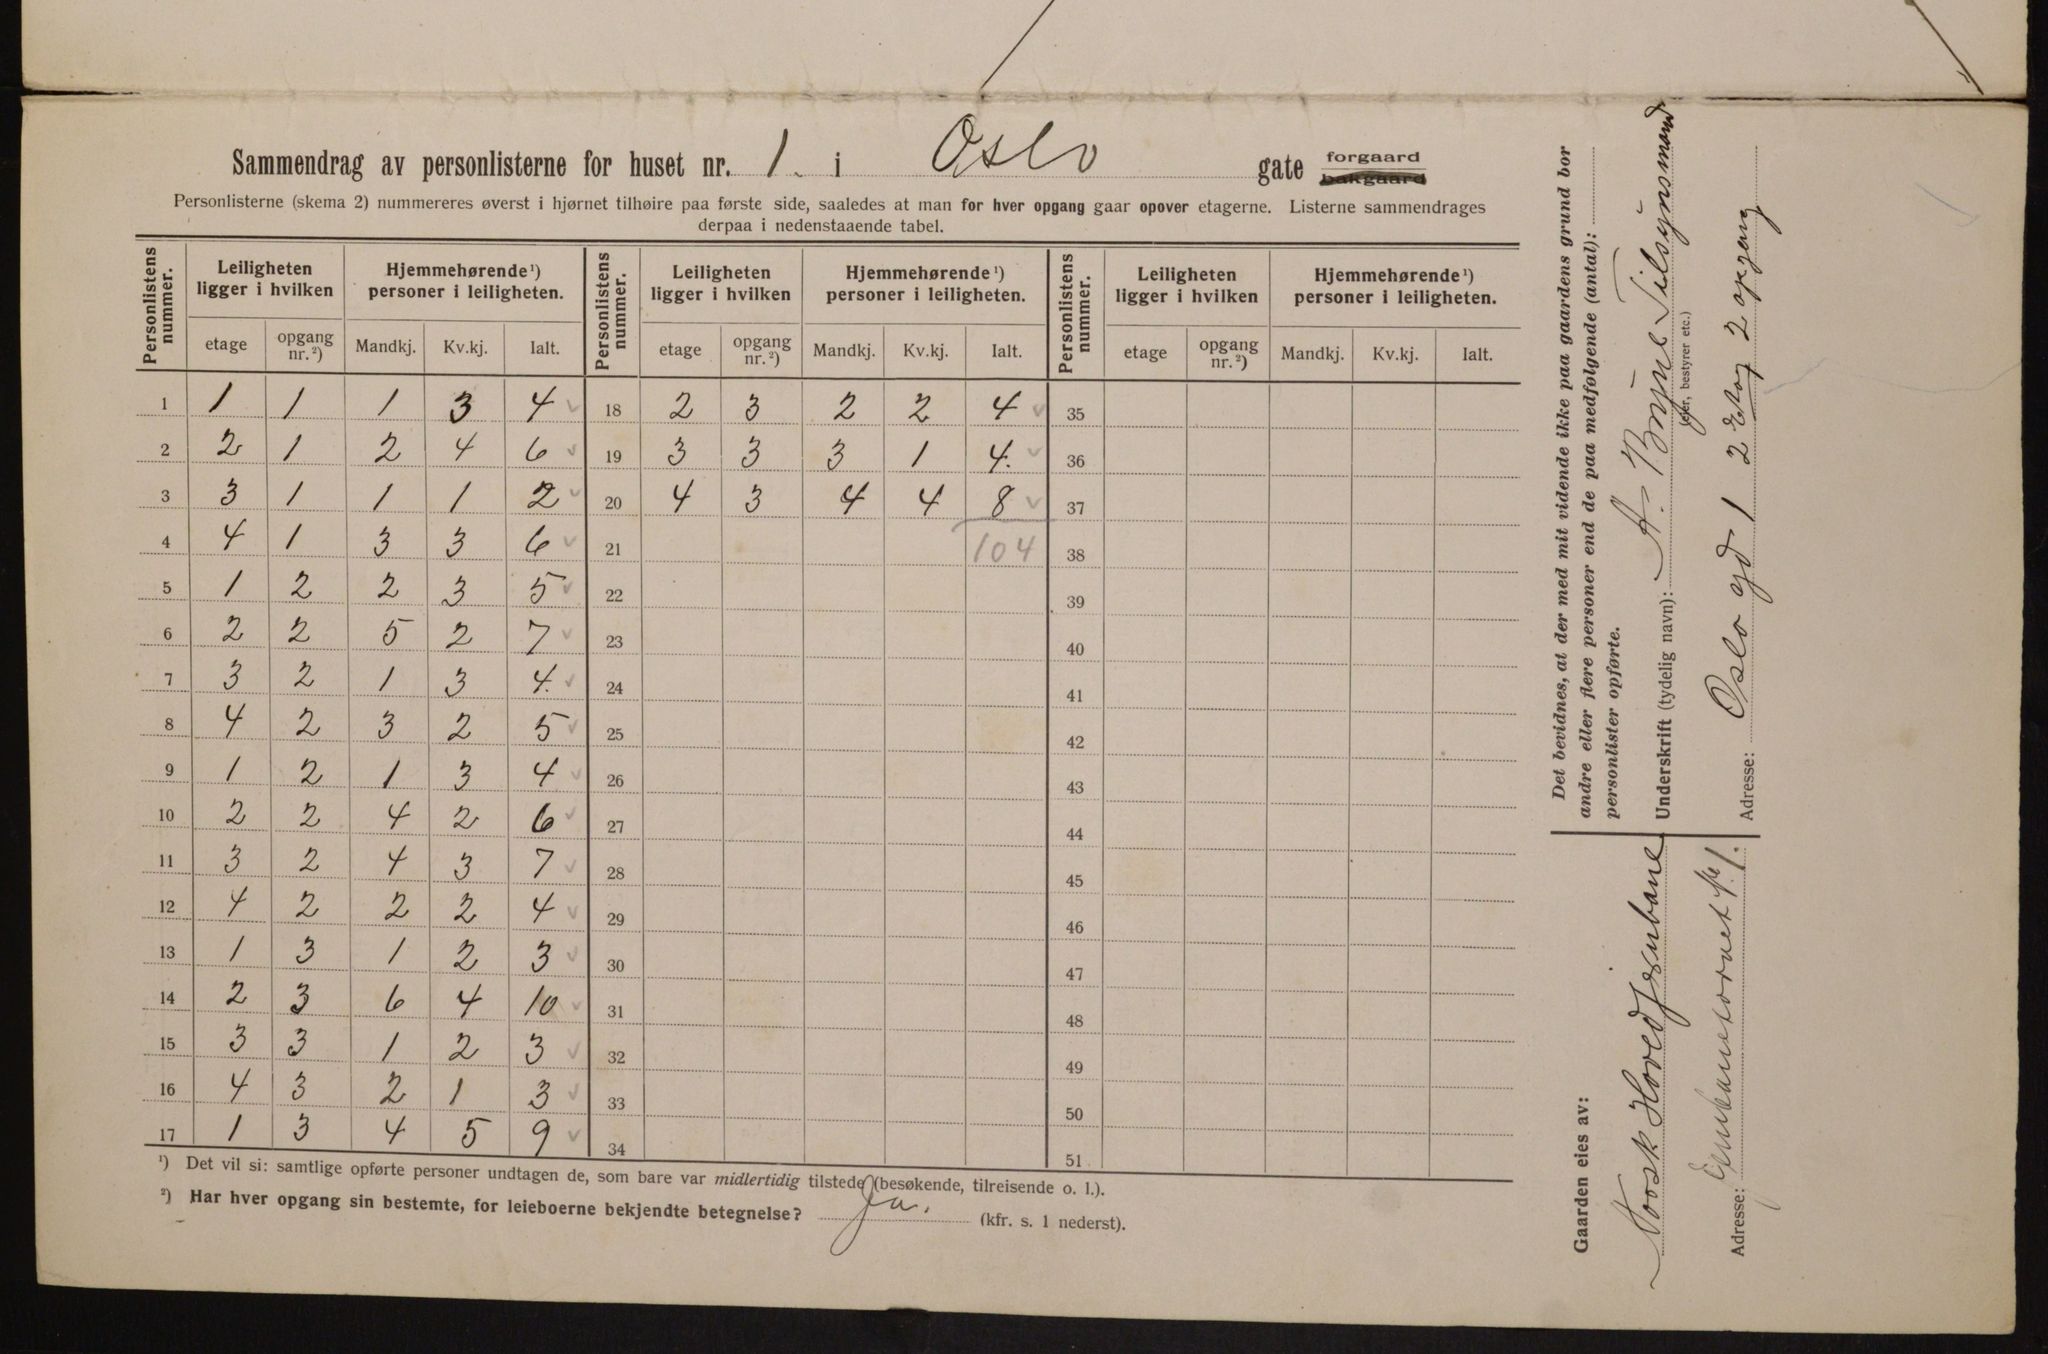 Sammendrag av personlisterne for huset nr. 1. i Oslo gate forgaard bakgaard
Personlisterne (skema 2) nummereres øverst i hjørnet tilhøire paa første side, saaledes at man for hver opgang gaar opover etagerne. Listerne sammendrages
derpaa i nedenstaaende tabel.
Personlistens nummer. Leiligheten ligger i hvilken Hjemmehørende ¹) personer i leiligheten. Personlistens nummer. Leiligheten ligger i hvilken Hjemmehørende ¹) personer i leiligheten. Personlistens nummer. Leiligheten ligger i hvilken Hjemmehørende ¹) personer i leiligheten.
etage opgang nr. ²) Mandkj. Kv.kj. Ialt. etage opgang nr. ²) Mandkj. Kv.kj. Ialt. etage opgang nr. ²) Mandkj. Kv.kj. Ialt.
1 1 1 1 3 4 18 2 3 2 2 4 35
2 2 1 2 4 6 19 3 3 3 1 4. 36
3 3 1 1 1 2 20 4 3 4 4 8 37
4 4 1 3 3 6 21 104 38
5 1 2 2 3 5 22 39
6 2 2 5 2 7 23 40
7 3 2 1 3 4. 24 41
8 4 2 3 2 5 25 42
9 1 2 1 3 4 26 43
10 2 2 4 2 6 27 44
11 3 2 4 3 7 28 45
12 4 2 2 2 4 29 46
13 1 3 1 2 3 30 47
14 2 3 6 4 10 31 48
15 3 3 1 2 3 32 49
16 4 3 2 1 3 33 50
17 1 3 4 5 9 34 51
¹) Det vil si: samtlige opførte personer undtagen de, som bare var midlertidig tilstede (besøkende, tilreisende o. l.).
²) Har hver opgang sin bestemte, for leieboerne bekjendte betegnelse? Ja. (kfr. s. 1 nederst).
Det bevidnes, at der med mit vidende ikke paa gaardens grund bor
andre eller flere personer end de paa medfølgende (antal):
personlister opførte.
Underskrift (tydelig navn): A. Bryne Tilsynsmand
(eier, bestyrer etc.)
Adresse: Oslo gd 1 2 Etag 2 opgang
Gaarden eies av:
Norsk Hovedjernbane
Adresse: Jernbanetorvet № 1.